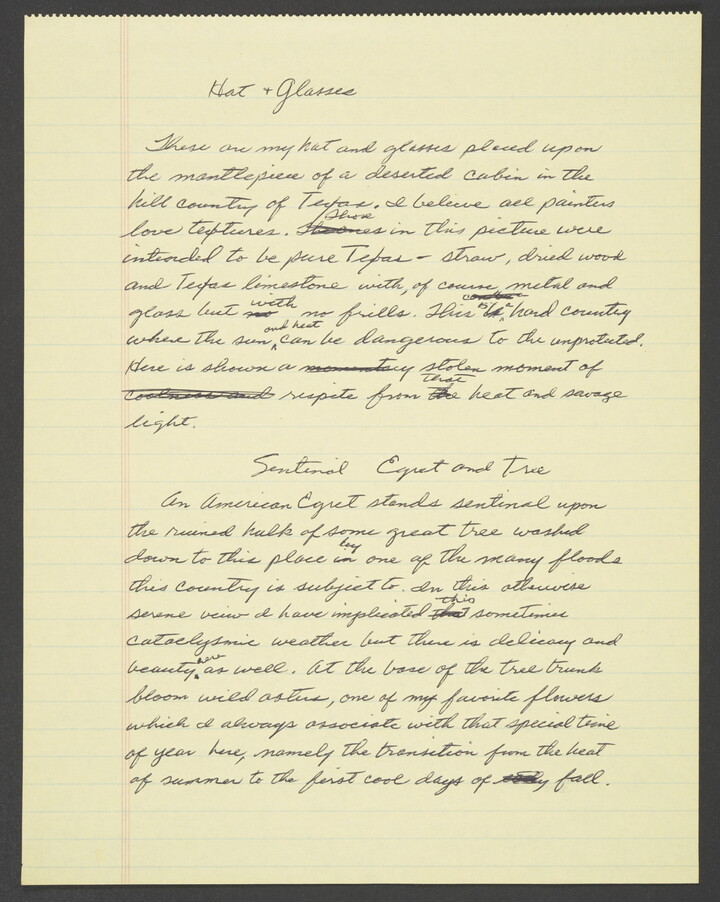 Hat + Glasses
These are my hat and glasses placed upon
the mantlepiece of a deserted cabin in the
hill country of Texas. I believe all painters
love textures. Those in this picture were
intended to be pure Texas – straw, dried wood
and Texas limestone with, of course, metal and
glass but with no frills. This is a hard country
where the sun and heat can be dangerous to the unprotected.
Here is shown a stolen moment of
respite from that heat and savage
light.
Sentinal Egret and Tree
An American Egret stands sentinal upon
the ruined hulk of some great tree washed
down to this place by one of the many floods
this country is subject to. In this otherwise
serene view I have implicated this sometimes
cataclysmic weather but there is delicacy and
beauty here as well. At the base of the tree trunk
bloom wild asters, one of my favorite flowers
which I always associate with that special time
of year here, namely the transition from the heat
of summer to the first cool days of fall.